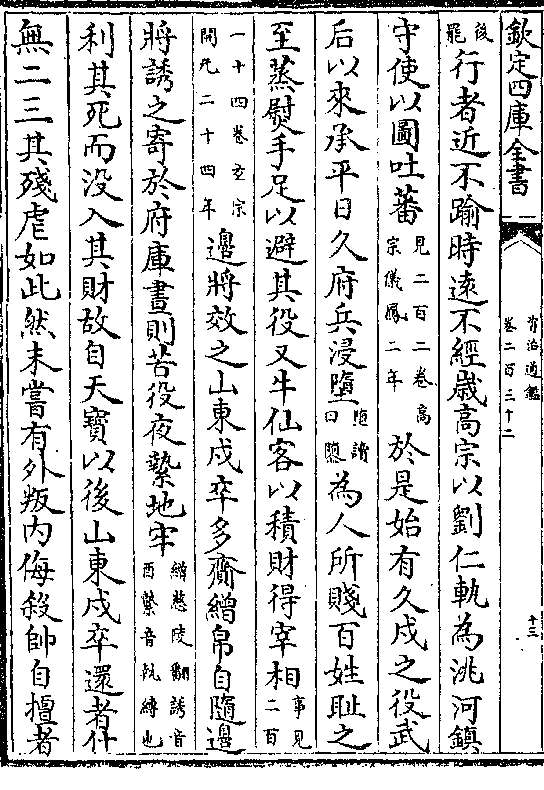 欽定四庫全書
資治通鑑
卷二百三十二
十三
後罷行者近不踰時遠不經歲高宗以劉仁軌為洮河鎮
守使以圖吐蕃見二百二卷高宗儀鳳二年於是始有久戍之役武
后以來承平日久府兵浸墮墮讀曰隳為人所賤百姓耻之
至蒸熨手足以避其役又牛仙客以積財得宰相事見二百
一十四卷玄宗開元二十四年邊將效之山東戍卒多齎繒帛自隨邊
將誘之寄於府庫晝則苦役夜縶地牢繒慈陵翻誘音酉縶音執縛也
利其死而没入其財故自天寶以後山東戍卒還者什
無二三其殘虐如此然未嘗有外叛内侮殺帥自擅者